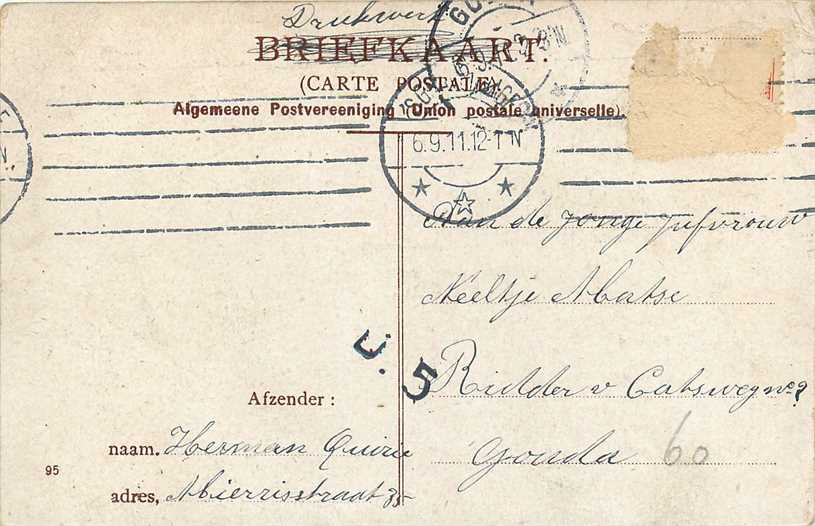 Drukwerk
BRIEFKAART.
(CARTE POSTALE)
Algemeene Postvereeniging (Union postale universelle)
6.9.11.12-1 N
Aan de Jonge Jufvrouw
Neeltje
Ridder v Catsweg no
Gouda 60
U. 5
Afzender :
naam. Herman
95
adres,